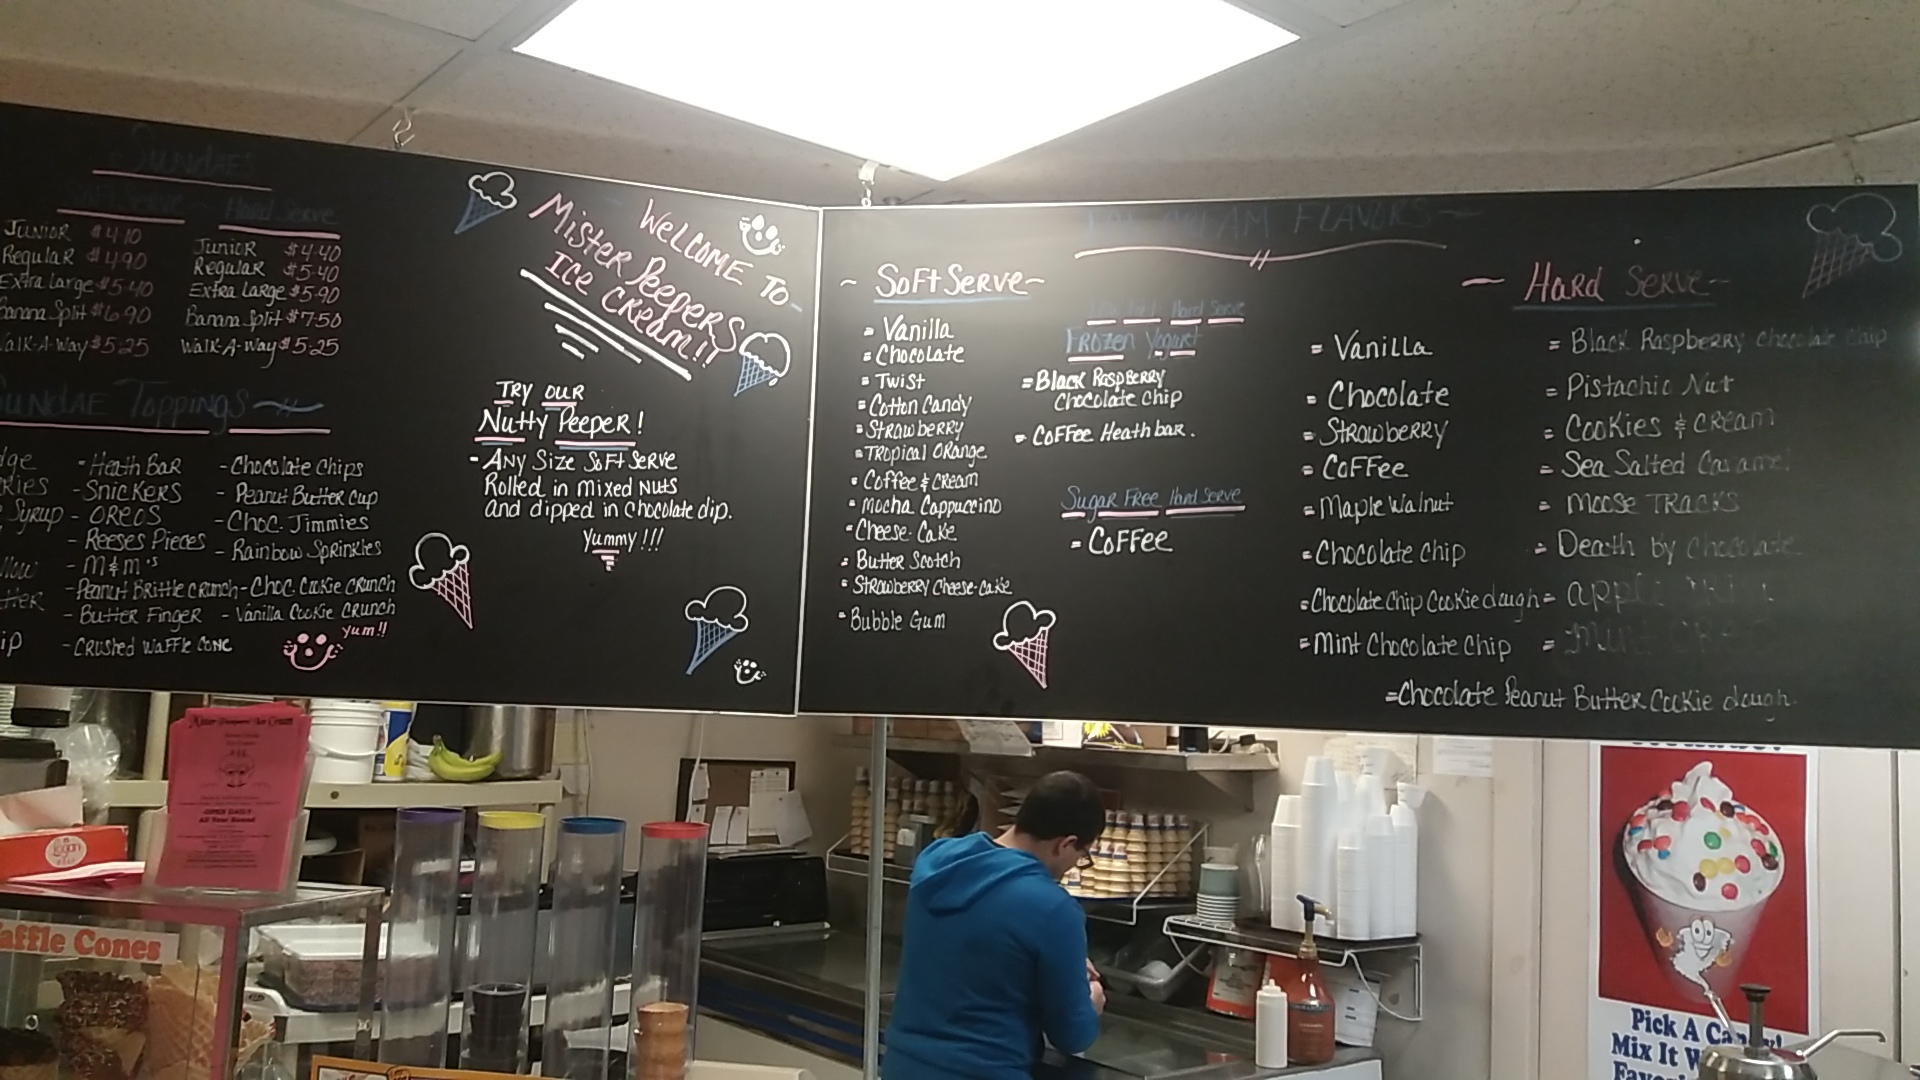 SUNDAES
Soft Serve
Hard Serve
Junior $4.10
Regular $4.90
Extra Large $5.40
Banana Split $6.90
Walk-A-Way $5.25
Junior $4.40
Regular $5.40
Extra Large $5.90
Banana Split $7.50
Walk-A-Way $5.25
SUNDAE Toppings
Syrup
- Heath Bar
- Snickers
- OREOS
- Reeses Pieces
- M&m's
- Peanut Brittle crunch
- Butter Finger
- Crushed Waffle Cone
- Chocolate Chips
- Peanut Butter Cup
- Choc. Jimmies
- Rainbow Sprinkles
- Choc Cookie Crunch
- Vanilla Cookie Crunch
Yum!!
Welcome To
Mister Peepers
Ice Cream!!
Try our
Nutty Peeper!
- Any Size Soft Serve
Rolled in mixed Nuts
and dipped in chocolate dip.
Yummy!!!
FLAVORS
~ Soft Serve ~
= Vanilla
= Chocolate
= Twist
= Cotton Candy
= Strawberry
= Tropical Orange
= Coffee & Cream
= Mocha Cappuccino
= Cheese-Cake
= Butter Scotch
= Strawberry Cheese-Cake
= Bubble Gum
Hard Serve
Frozen Yogurt
= Black Raspberry
Chocolate Chip
= Coffee Heath bar.
Sugar Free Hard Serve
= Coffee
~ Hard Serve ~
= Vanilla
= Chocolate
= Strawberry
= Coffee
= Maple Walnut
= Chocolate Chip
= Chocolate Chip Cookie dough
= Mint Chocolate Chip
= Black Raspberry Chocolate Chip
= Pistachio Nut
= Cookies & Cream
= Sea Salted Caramel
= Moose Tracks
= Death by Chocolate
= Chocolate Peanut Butter Cookie dough.
Mister Peepers Ice Cream
OPEN DAILY
All Year Round
Waffle Cones
Pick A Candy!
Mix It